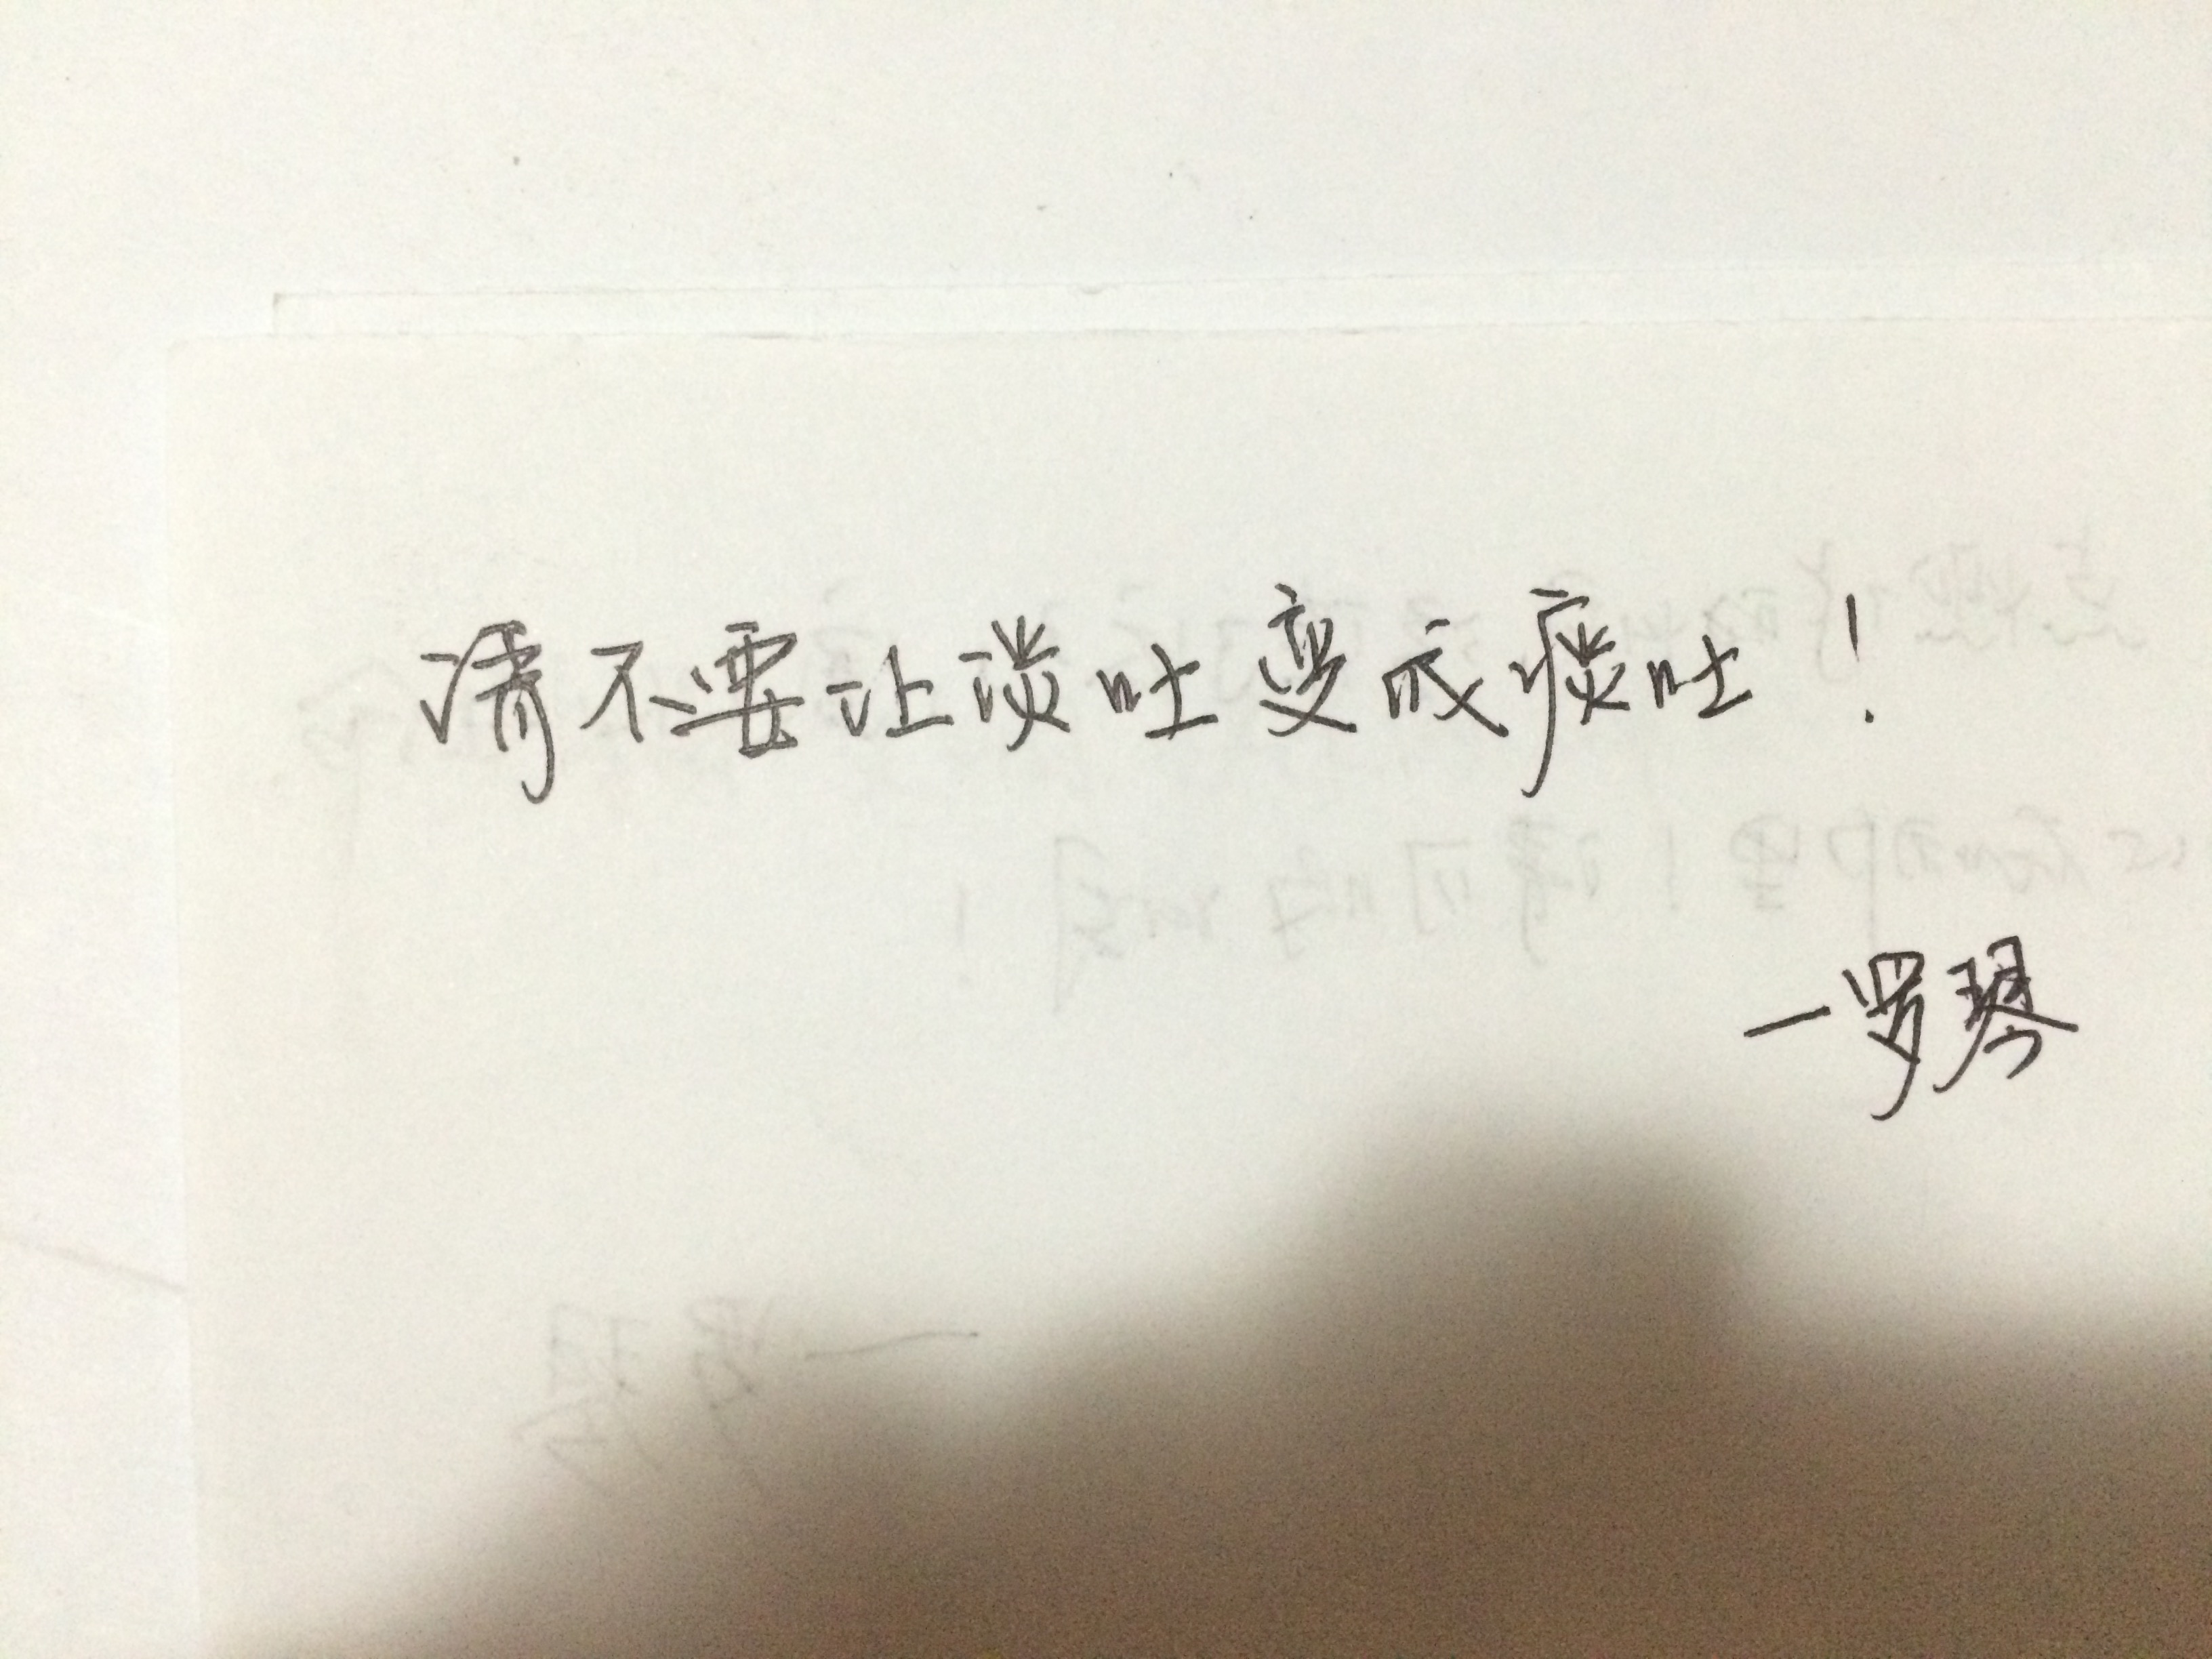 请不要让谈吐变成痰吐！
—罗琴